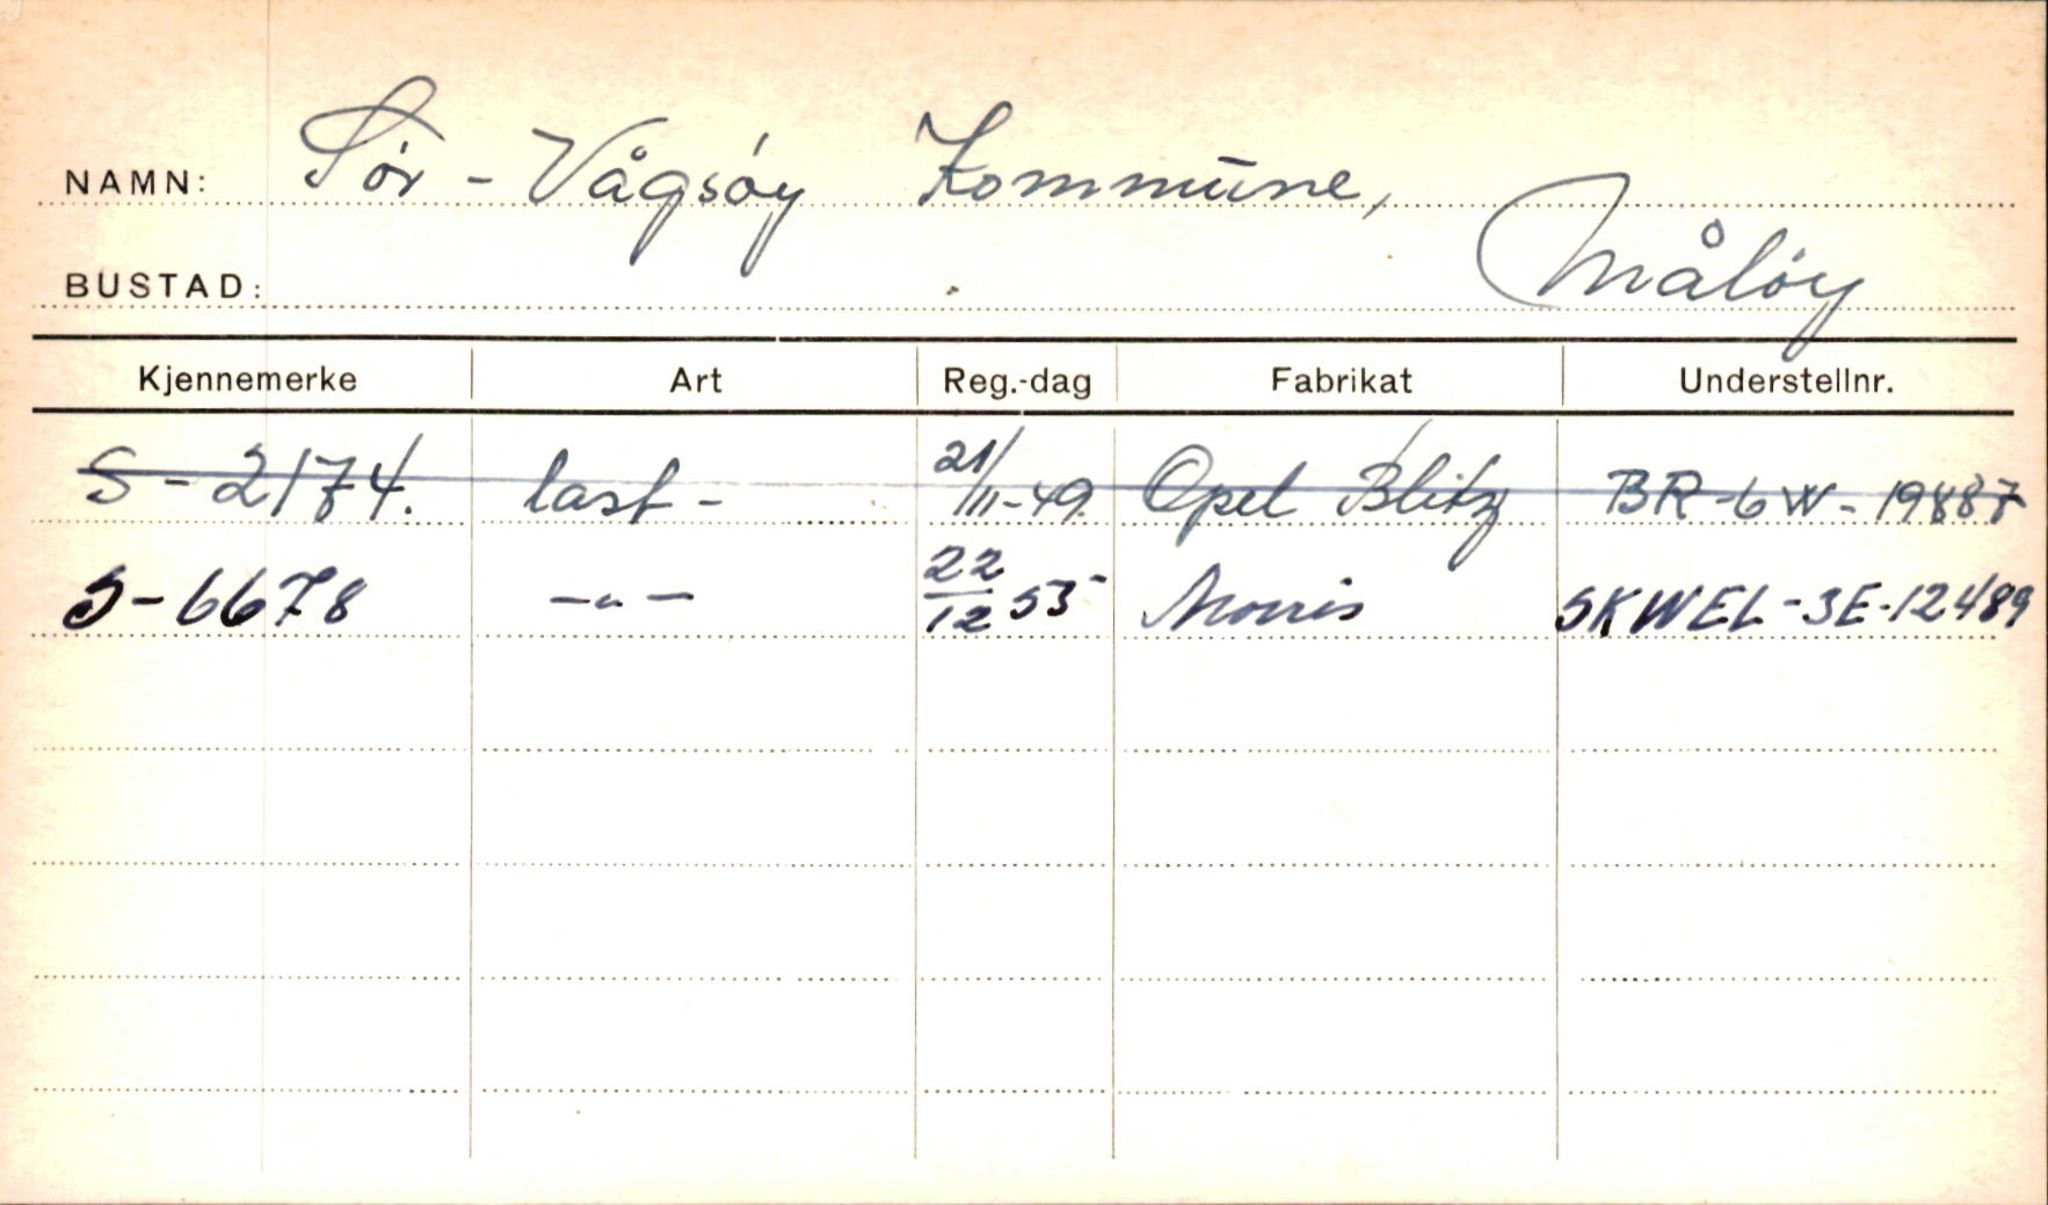 NAMN: Sör - Vågsöy Kommune,
BUSTAD: Målöy
Kjennemerke Art Reg.-dag Fabrikat Understellnr.
S - 2174. last - 21/11-49. Opel Blitz BR-6W-19887
S-6678 -"- 22/12 53 Morris SKWEL-3E-12489